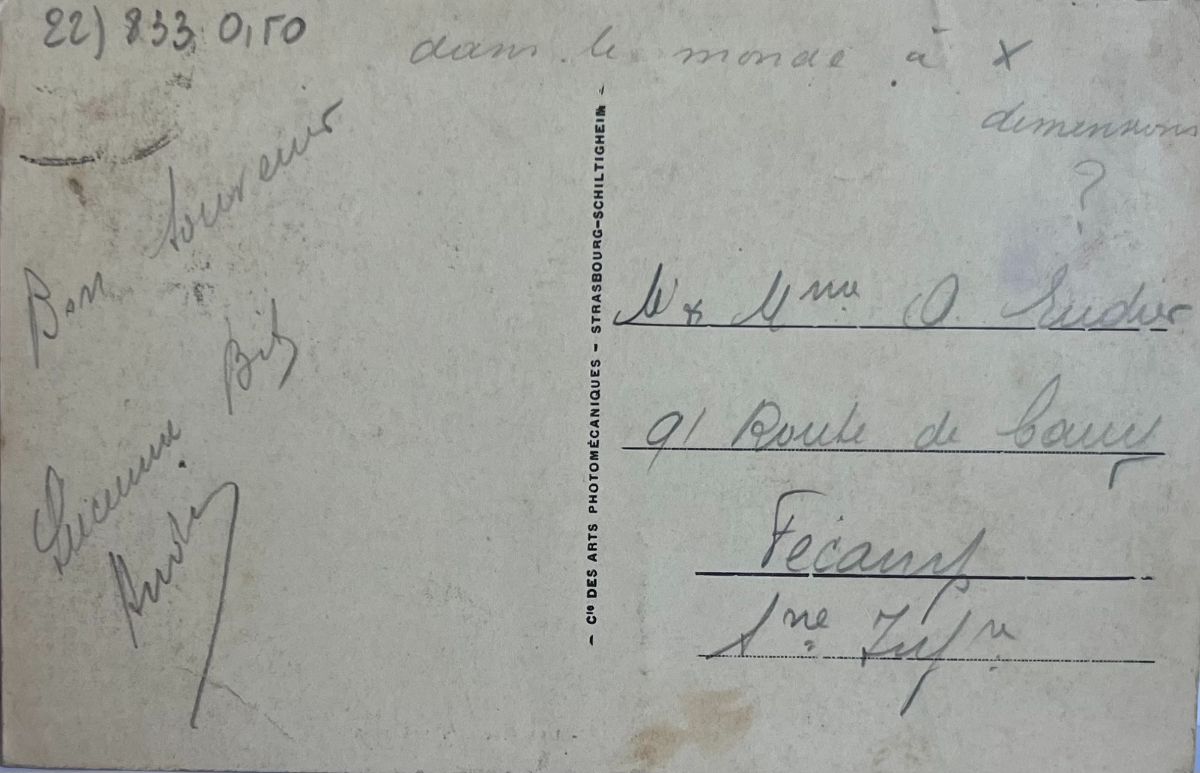 22) 833 0,50
dans le monde à x
dimensions
?
Bon souvenir
Lucienne
André
– Cie DES ARTS PHOTOMÉCANIQUES – STRASBOURG–SCHILTIGHEIM –
Mr & Mme O
91 Route de Cany
Fécamp
Sne Infre